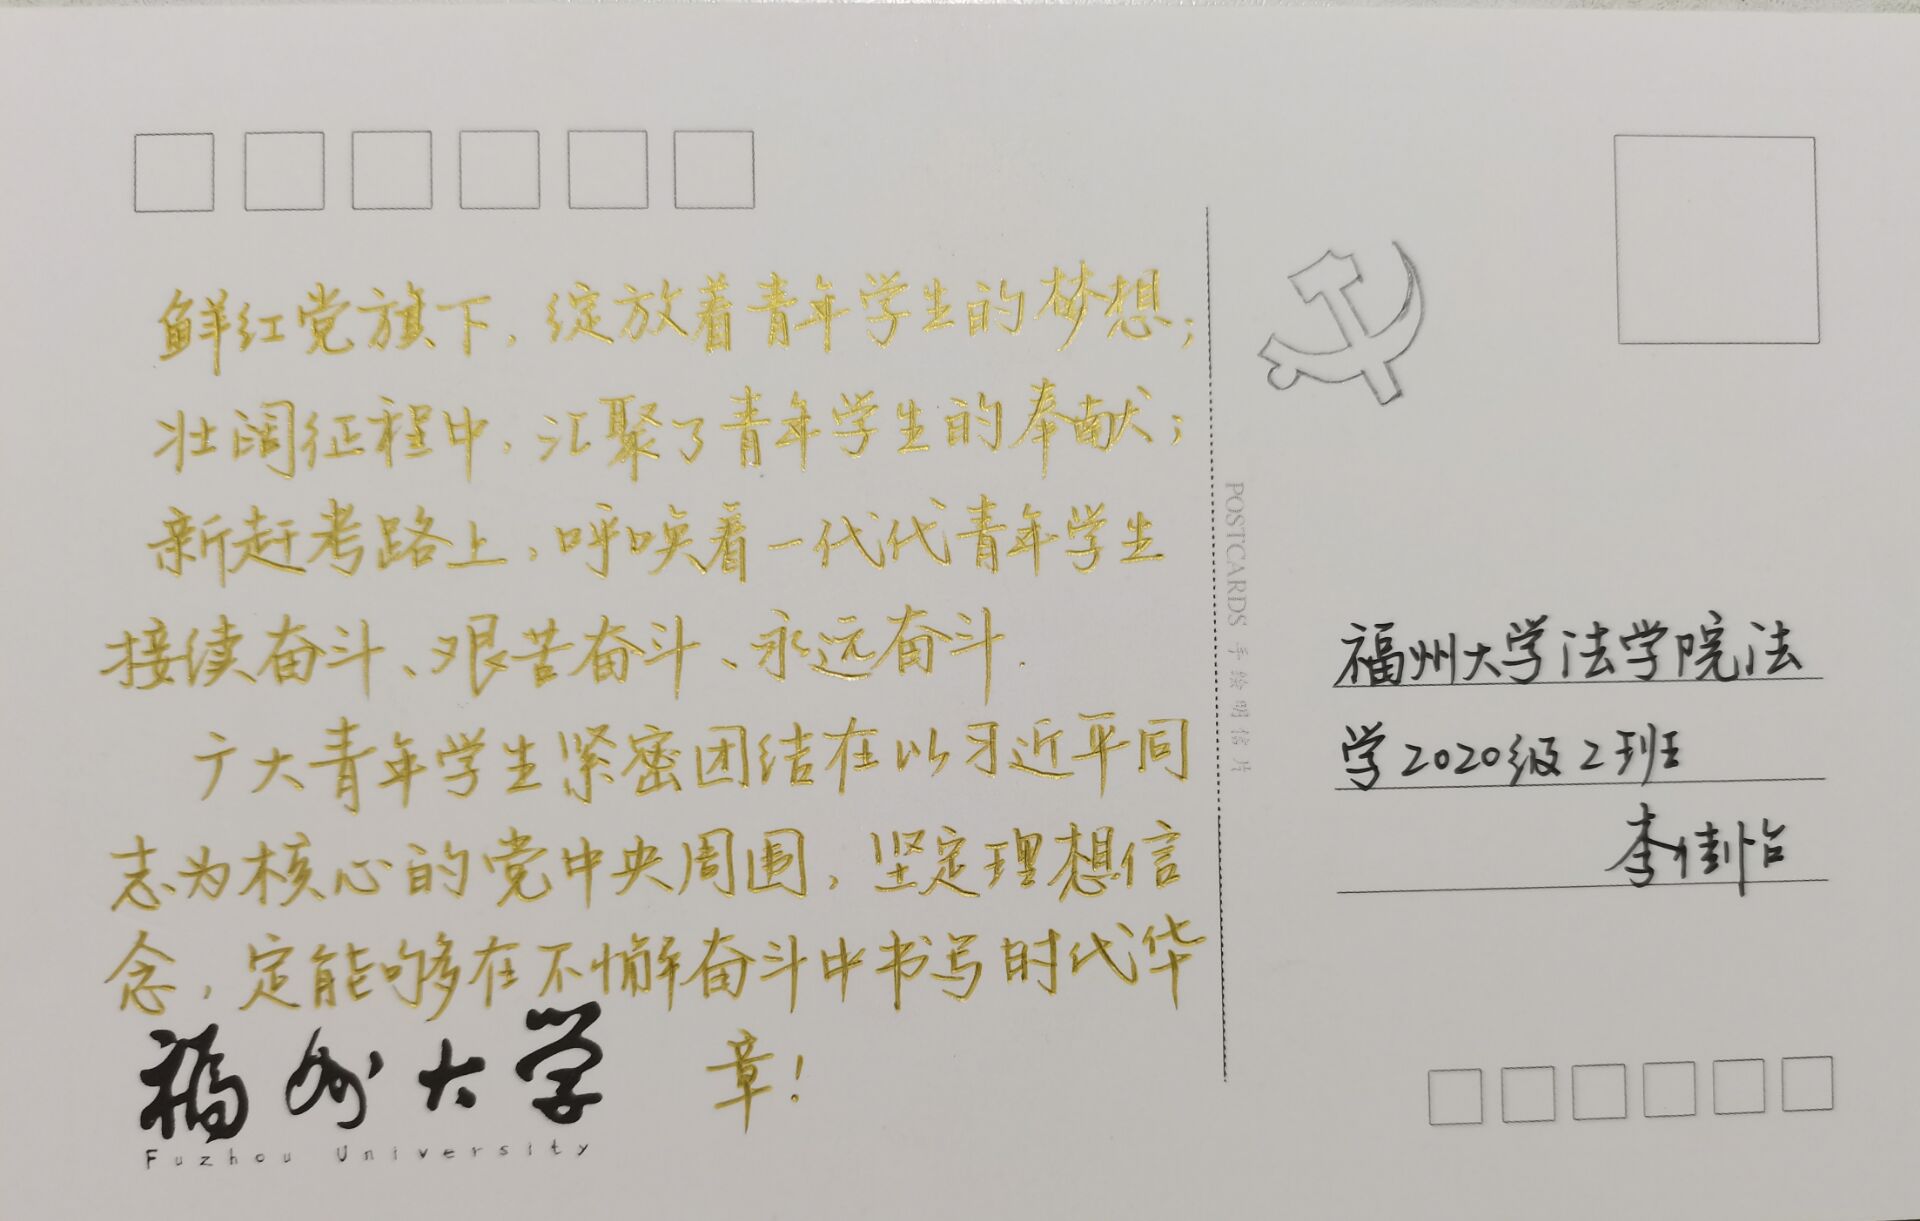 鲜红党旗下，绽放着青年学生的梦想；
壮阔征程中，汇聚了青年学生的奉献；
新赶考路上，呼唤着一代代青年学生
接续奋斗、艰苦奋斗、永远奋斗.
广大青年学生紧密团结在以习近平同
志为核心的党中央周围，坚定理想信
念，定能够在不懈奋斗中书写时代华
章！
福州大学
Fuzhou University
POSTCARDS 手绘明信片
福州大学法学院法
学2020级2班
李佳怡